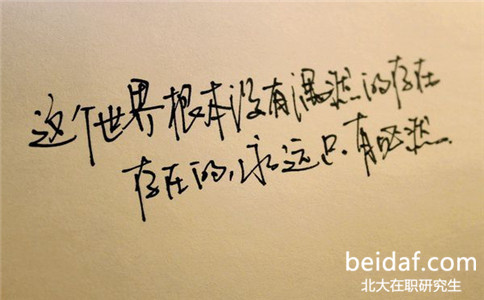 这个世界根本没有偶然的存在
存在的,永远只有必然
beidaf.com
北大在职研究生